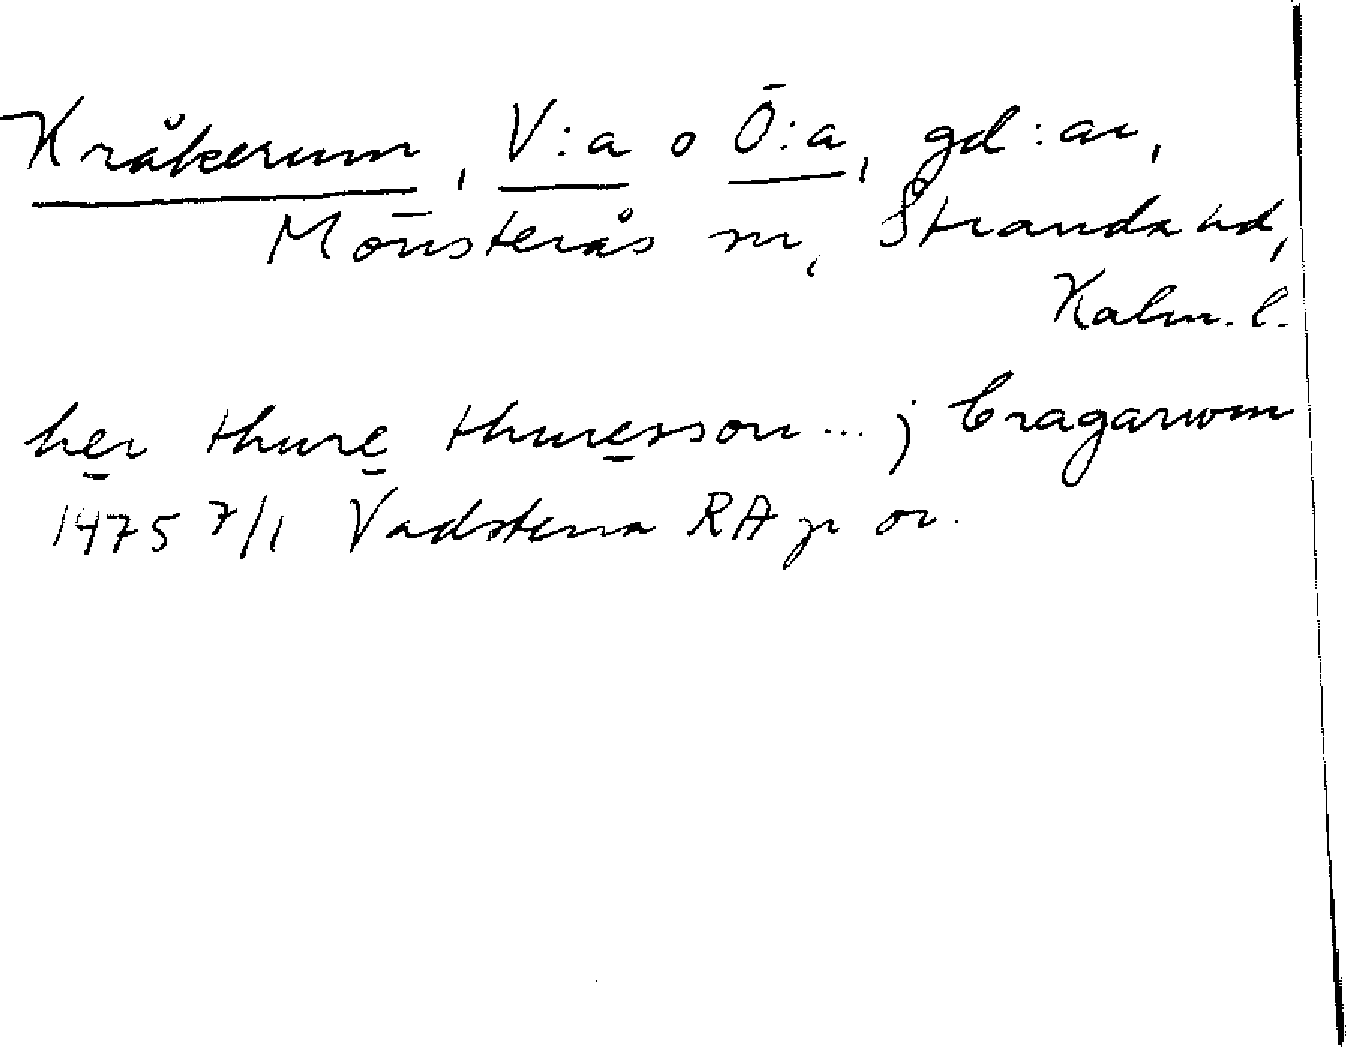 Kråkerum, V:a o Ö:a, gd:ar,
Mönsterås sn, Stranda hd,
Kalm. l.
her thure thuresson ... j Cragarwm
1475 7/1 Vadstena RA p or.